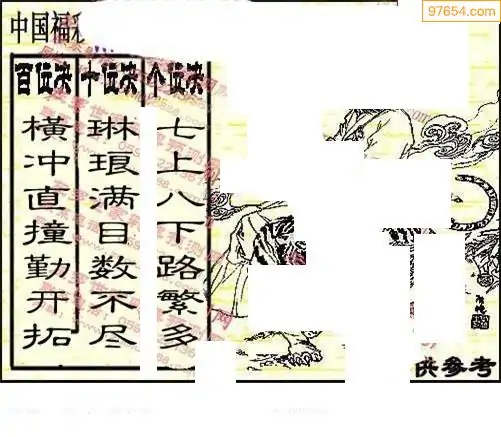 97654.com
中国福彩
百位决 十位决 个位决
横冲直撞勤开拓
琳琅满目数不尽
七上八下路繁多
供参考